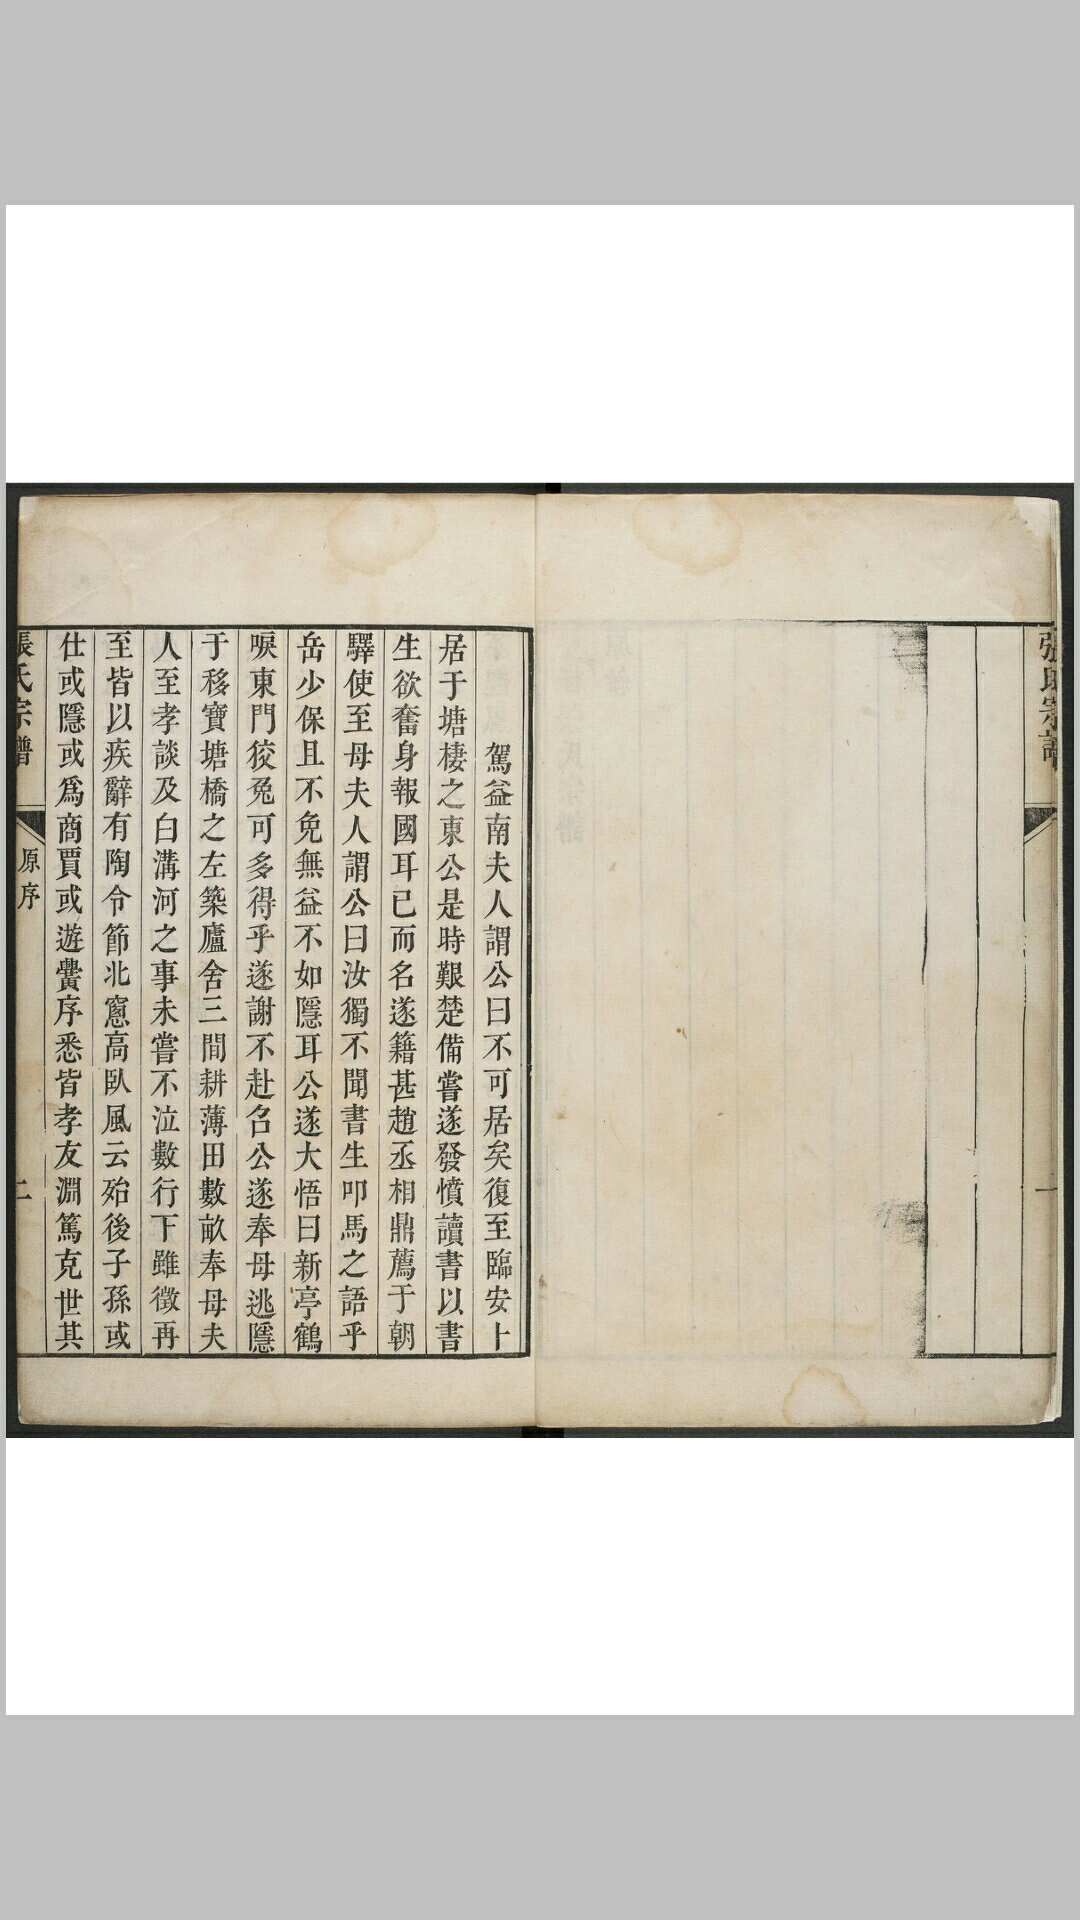 張氏宗譜
一
駕益南夫人謂公曰不可居矣復至臨安卜
居于塘棲之東公是時艱楚備嘗遂發憤讀書以書
生欲奮身報國耳已而名遂籍甚趙丞相鼎薦于朝
驛使至母夫人謂公曰汝獨不聞書生叩馬之語乎
岳少保且不免無益不如隱耳公遂大悟曰新亭鶴
唳東門狡兔可多得乎遂謝不赴召公遂奉母逃隱
于移寶塘橋之左築廬舍三間耕薄田數畝奉母夫
人至孝談及白溝河之事未嘗不泣數行下雖徵再
至皆以疾辭有陶令節北窻高臥風云殆後子孫或
仕或隱或爲商賈或遊黌序悉皆孝友淵篤克世其
張氏宗譜
原序
二